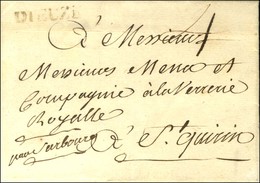 DIEUZE
à Messieurs
Messieurs Mena et
Compagnie à la Verrerie
Royalle
par Sarbourg à St Quirin